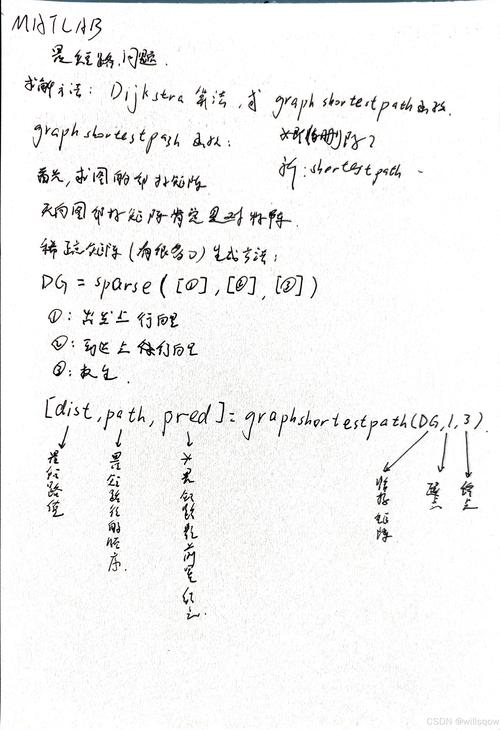 MATLAB
最短路问题.
求解方法: Dijkstra 算法, 或 graphshortestpath函数.
graphshortestpath 函数:
新: shortestpath
首先, 求图的邻接矩阵
无向图邻接矩阵肯定是对称阵.
稀疏矩阵 (有很多0) 生成方法:
DG = sparse ( [①], [②], [③] )
①: 出发点 行向量
②: 到达点 行向量
③: 权重.
[dist, path, pred] = graphshortestpath(DG,1,3).
最短路径
最短路径的顺序.
邻接矩阵
起点
终点
CSDN @willsqow